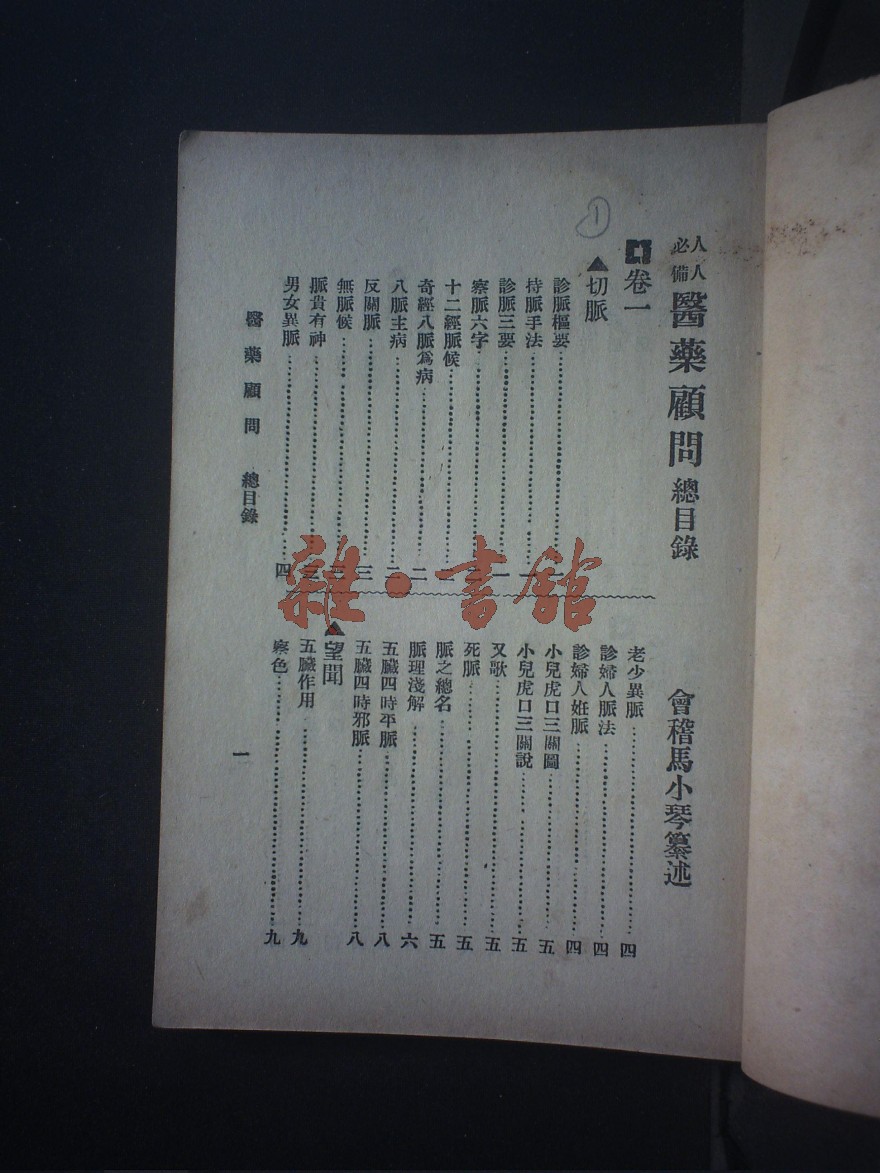 人人必備 醫藥顧問 總目錄 會稽馬小琴纂述
卷一
▲切脈
診脈樞要……一
持脈手法……一
診脈三要……一
察脈六字……二
十二經脈候……二
奇經八脈爲病……二
八脈主病……二
反關脈……三
無脈候……三
脈貴有神……三
男女異脈……四
老少異脈……四
診婦人脈法……四
診婦人妊脈……四
小兒虎口三關圖……五
小兒虎口三關說……五
又歌……五
死脈……五
脈之總名……五
脈理淺解……六
五臟四時平脈……八
五臟四時邪脈……八
▲望聞
五臟作用……九
察色……九
醫藥顧問 總目錄
一
①
雜·書館